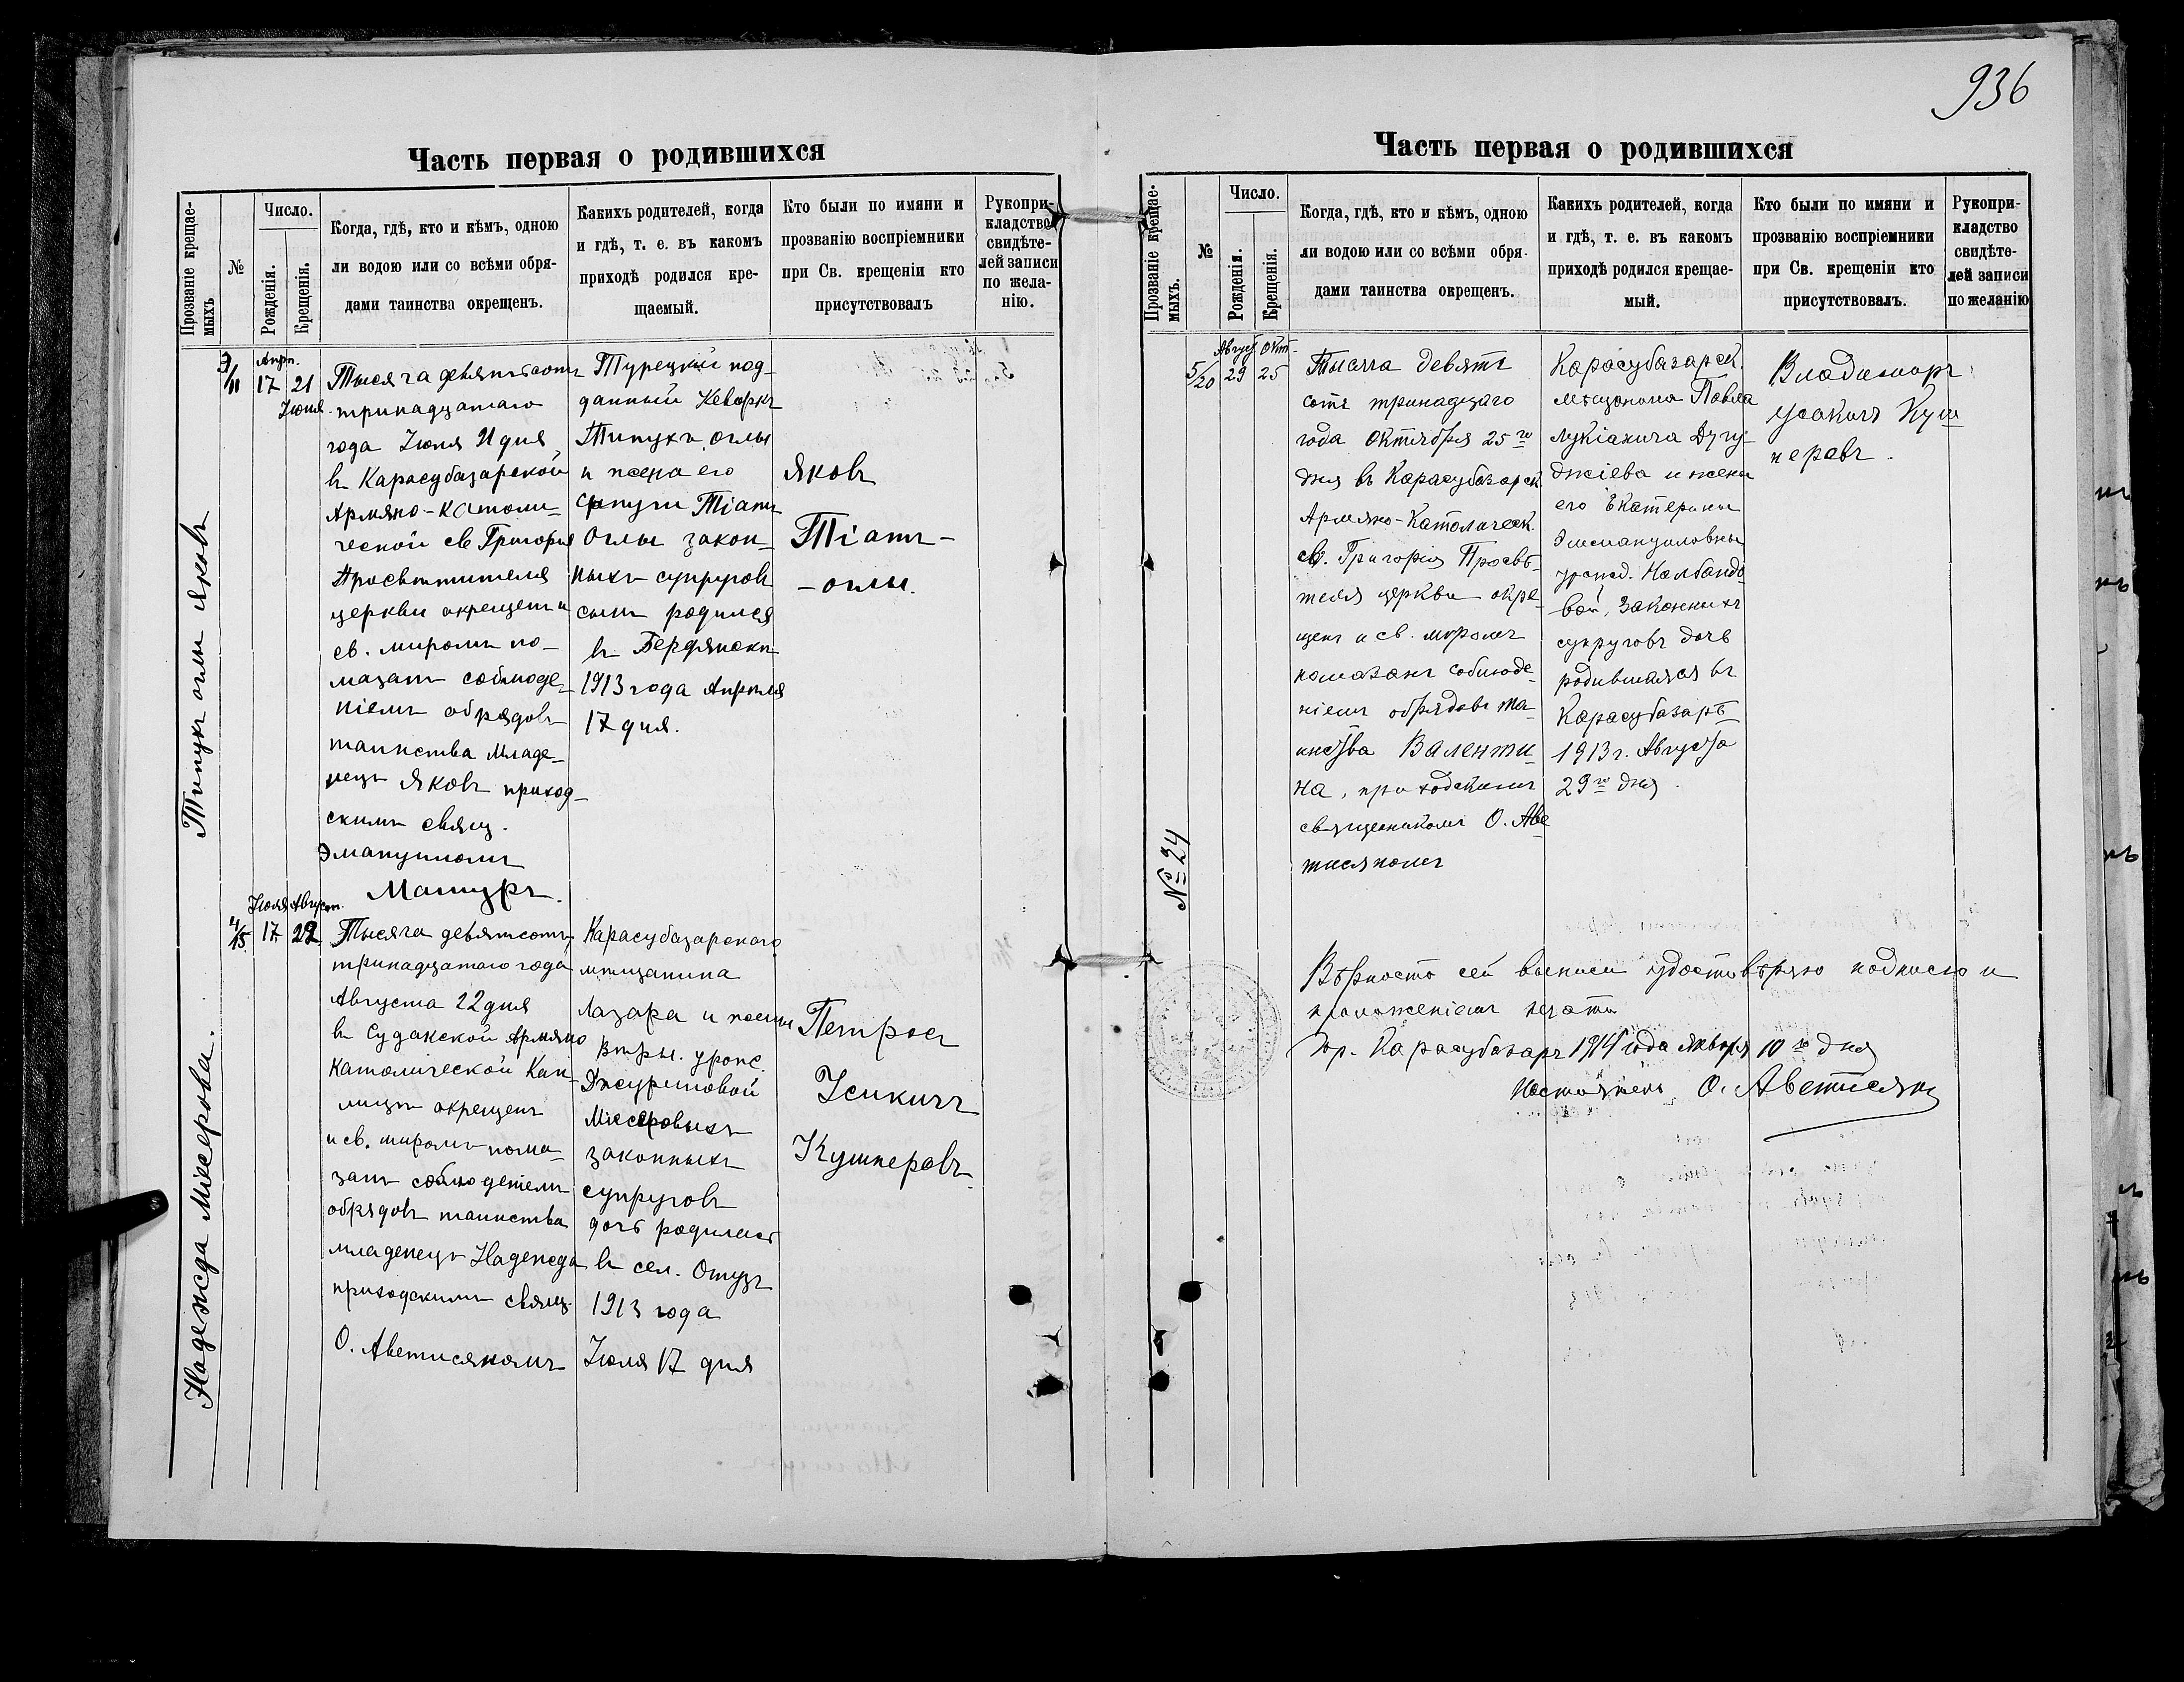 936
Часть первая о родившихся
Прозваніе крещае-
мыхъ
№
Число.
Рожденія.
Крещенія.
Когда, гдѣ, кто и кѣмъ, одною
ли водою или со всѣми обря-
дами таинства окрещенъ.
Какихъ родителей, когда
и гдѣ, т. е. въ какомъ
приходѣ родился кре-
щаемый.
Кто были по имяни и
прозванію воспріемники
при Св. крещеніи кто
присутствовалъ
Рукопри-
кладство
свидѣте-
лей записи
по жела-
нію.
Типукъ оглы Яковъ
3/11
Апр.
17
21
Іюня
Тысяча девятьсотъ
тринадцатаго
года Іюня 21 дня
въ Карасубазарской
Армяно-Католи-
ческой св Григорія
Просвѣтителя
церкви окрещенъ и
св. миромъ по-
мазанъ соблюде-
ніемъ обрядовъ
таинства младе-
нецъ Яковъ приход-
скимъ свящ.
Эмануиломъ
Матуръ.
Турецкій под-
данный Кеворкъ
Типукъ оглы
и жена его
Тіатъ
Оглы закон-
ныхъ супруговъ
сынъ родился
въ Бердянскѣ
1913 года Апрѣля
17 дня.
Яковъ
Тіатъ-
-оглы.
Надежда Мисерова.
4/15
Іюля
17
Август.
22
Тысяча девятьсотъ
тринадцатаго года
Августа 22 дня
въ Судакской Армяно
Католической Кап-
лицѣ окрещенъ
и св. миромъ пома-
занъ соблюденіемъ
обрядовъ таинства
младенецъ Надежда
приходскимъ свящ.
О. Аветисяномъ
Карасубазарскаго
мѣщанина
Лазара и жены
Вѣры. урожд.
Джуришовой
Мисеровыхъ
законныхъ
супруговъ
дочь родилась
въ сел. Отузъ
1913 года
Іюля 17 дня
Петросъ
Исикичъ
Кушнеровъ.
Часть первая о родившихся
Прозваніе крещае-
мыхъ.
№
Число.
Рожденія.
Крещенія.
Когда, гдѣ, кто и кѣмъ, одною
ли водою или со всѣми обря-
дами таинства окрещенъ.
Какихъ родителей, когда
и гдѣ, т. е. въ какомъ
приходѣ родился крещае-
мый.
Кто были по имяни и
прозванію воспріемники
при Св. крещеніи кто
присутствовалъ.
Рукопри-
кладство
свидѣте-
лей записи
по желанію
№ 24
5/20
Август
29
Окт.
25
Тысяча девять
сотъ тринадцаго
года Октября 25 го
дня въ Карасубазарск.
Армяно-Католическ.
св. Григорія Просвѣ-
теля церкви окре-
щенъ и св. миромъ
помазанъ соблюде-
ніемъ обрядовъ та-
инства Валенти-
на, приходскимъ
священикомъ О. Аве
тисяномъ
Карасубазарск.
мѣщанина Павла
Лукіанича Дугу-
джіева и жены
его Екатерины
Эммануиловны
урожд. Налбандо-
вой, законныхъ
супруговъ дочь
родившаяся въ
Карасубазарѣ
1913 г. Августа
29 го дня.
Владиміръ
Исакичъ Куш
неровъ.
Вѣрность сей выписи удостовѣряю подписю и
приложеніемъ печати
Гор. Карасубазаръ 1914 года Января 10 го дня
Настоятель О. Аветисянъ